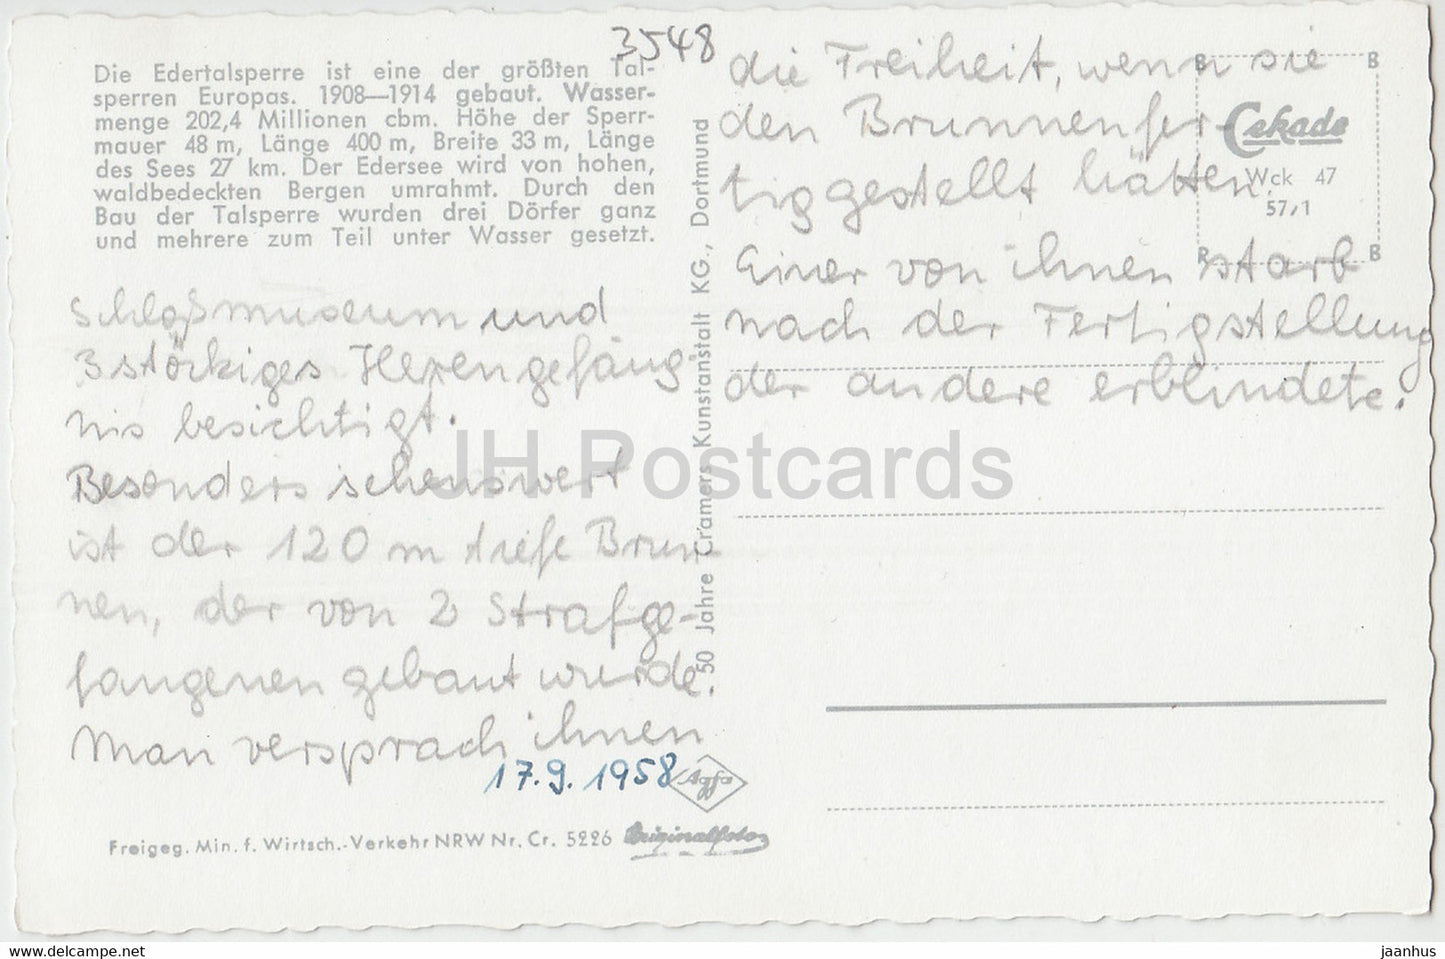 3548
Die Edertalsperre ist eine der größten Tal-
sperren Europas. 1908—1914 gebaut. Wasser-
menge 202,4 Millionen cbm. Höhe der Sperr-
mauer 48 m, Länge 400 m, Breite 33 m, Länge
des Sees 27 km. Der Edersee wird von hohen,
waldbedeckten Bergen umrahmt. Durch den
Bau der Talsperre wurden drei Dörfer ganz
und mehrere zum Teil unter Wasser gesetzt.
Schloßmuseum und
3 störkiges Hexengefäng
nis besichtigt.
Besonders sehenswert
ist der 120 m tiefe Brun
nen, der von 2 Strafge-
fangenen gebaut wurde.
Man versprach ihnen
17.9.1958
Freigeg. Min. f. Wirtsch.-Verkehr NRW Nr. Cr. 5226
Agfa
Originalfoto
50 Jahre Cramers Kunstanstalt KG., Dortmund
die Freiheit, wenn sie
den Brunnen fer-
tiggestellt hätten.
Einer von ihnen starb
nach der Fertigstellung
der andere erblindete.
B B
Cekade
Wck 47
57/1
R B
JH Postcards
www.delcampe.net
jaanhus